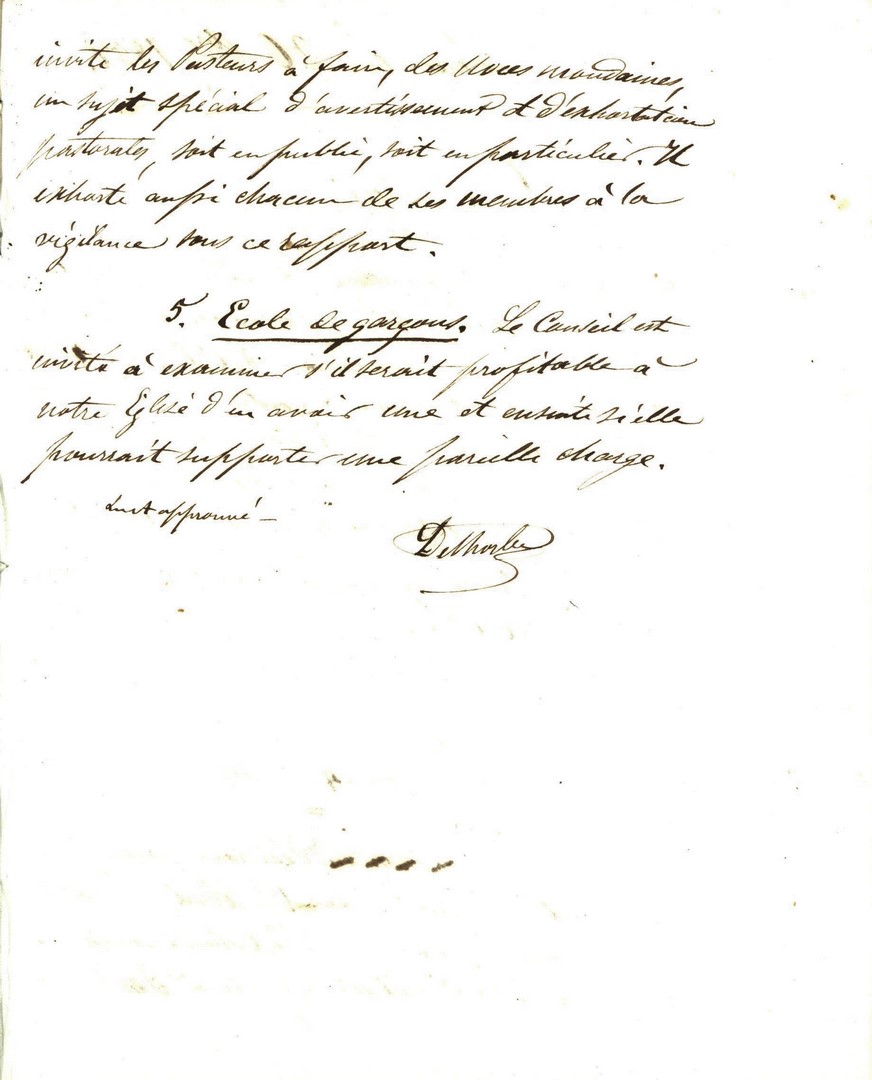 invite les Pasteurs à faire, des noces mondaines,
un sujet spécial d'avertissement et d'exhortation
pastorales, soit en public, soit en particulier. Il
exhorte aussi chacun de ses membres à la
vigilance sous ce rapport.
5. Ecole de garçons. Le Conseil est
invité à examiner s'il serait profitable à
notre Eglise d'en avoir une et ensuite si elle
pourrait supporter une pareille charge.
Lu et approuvé —